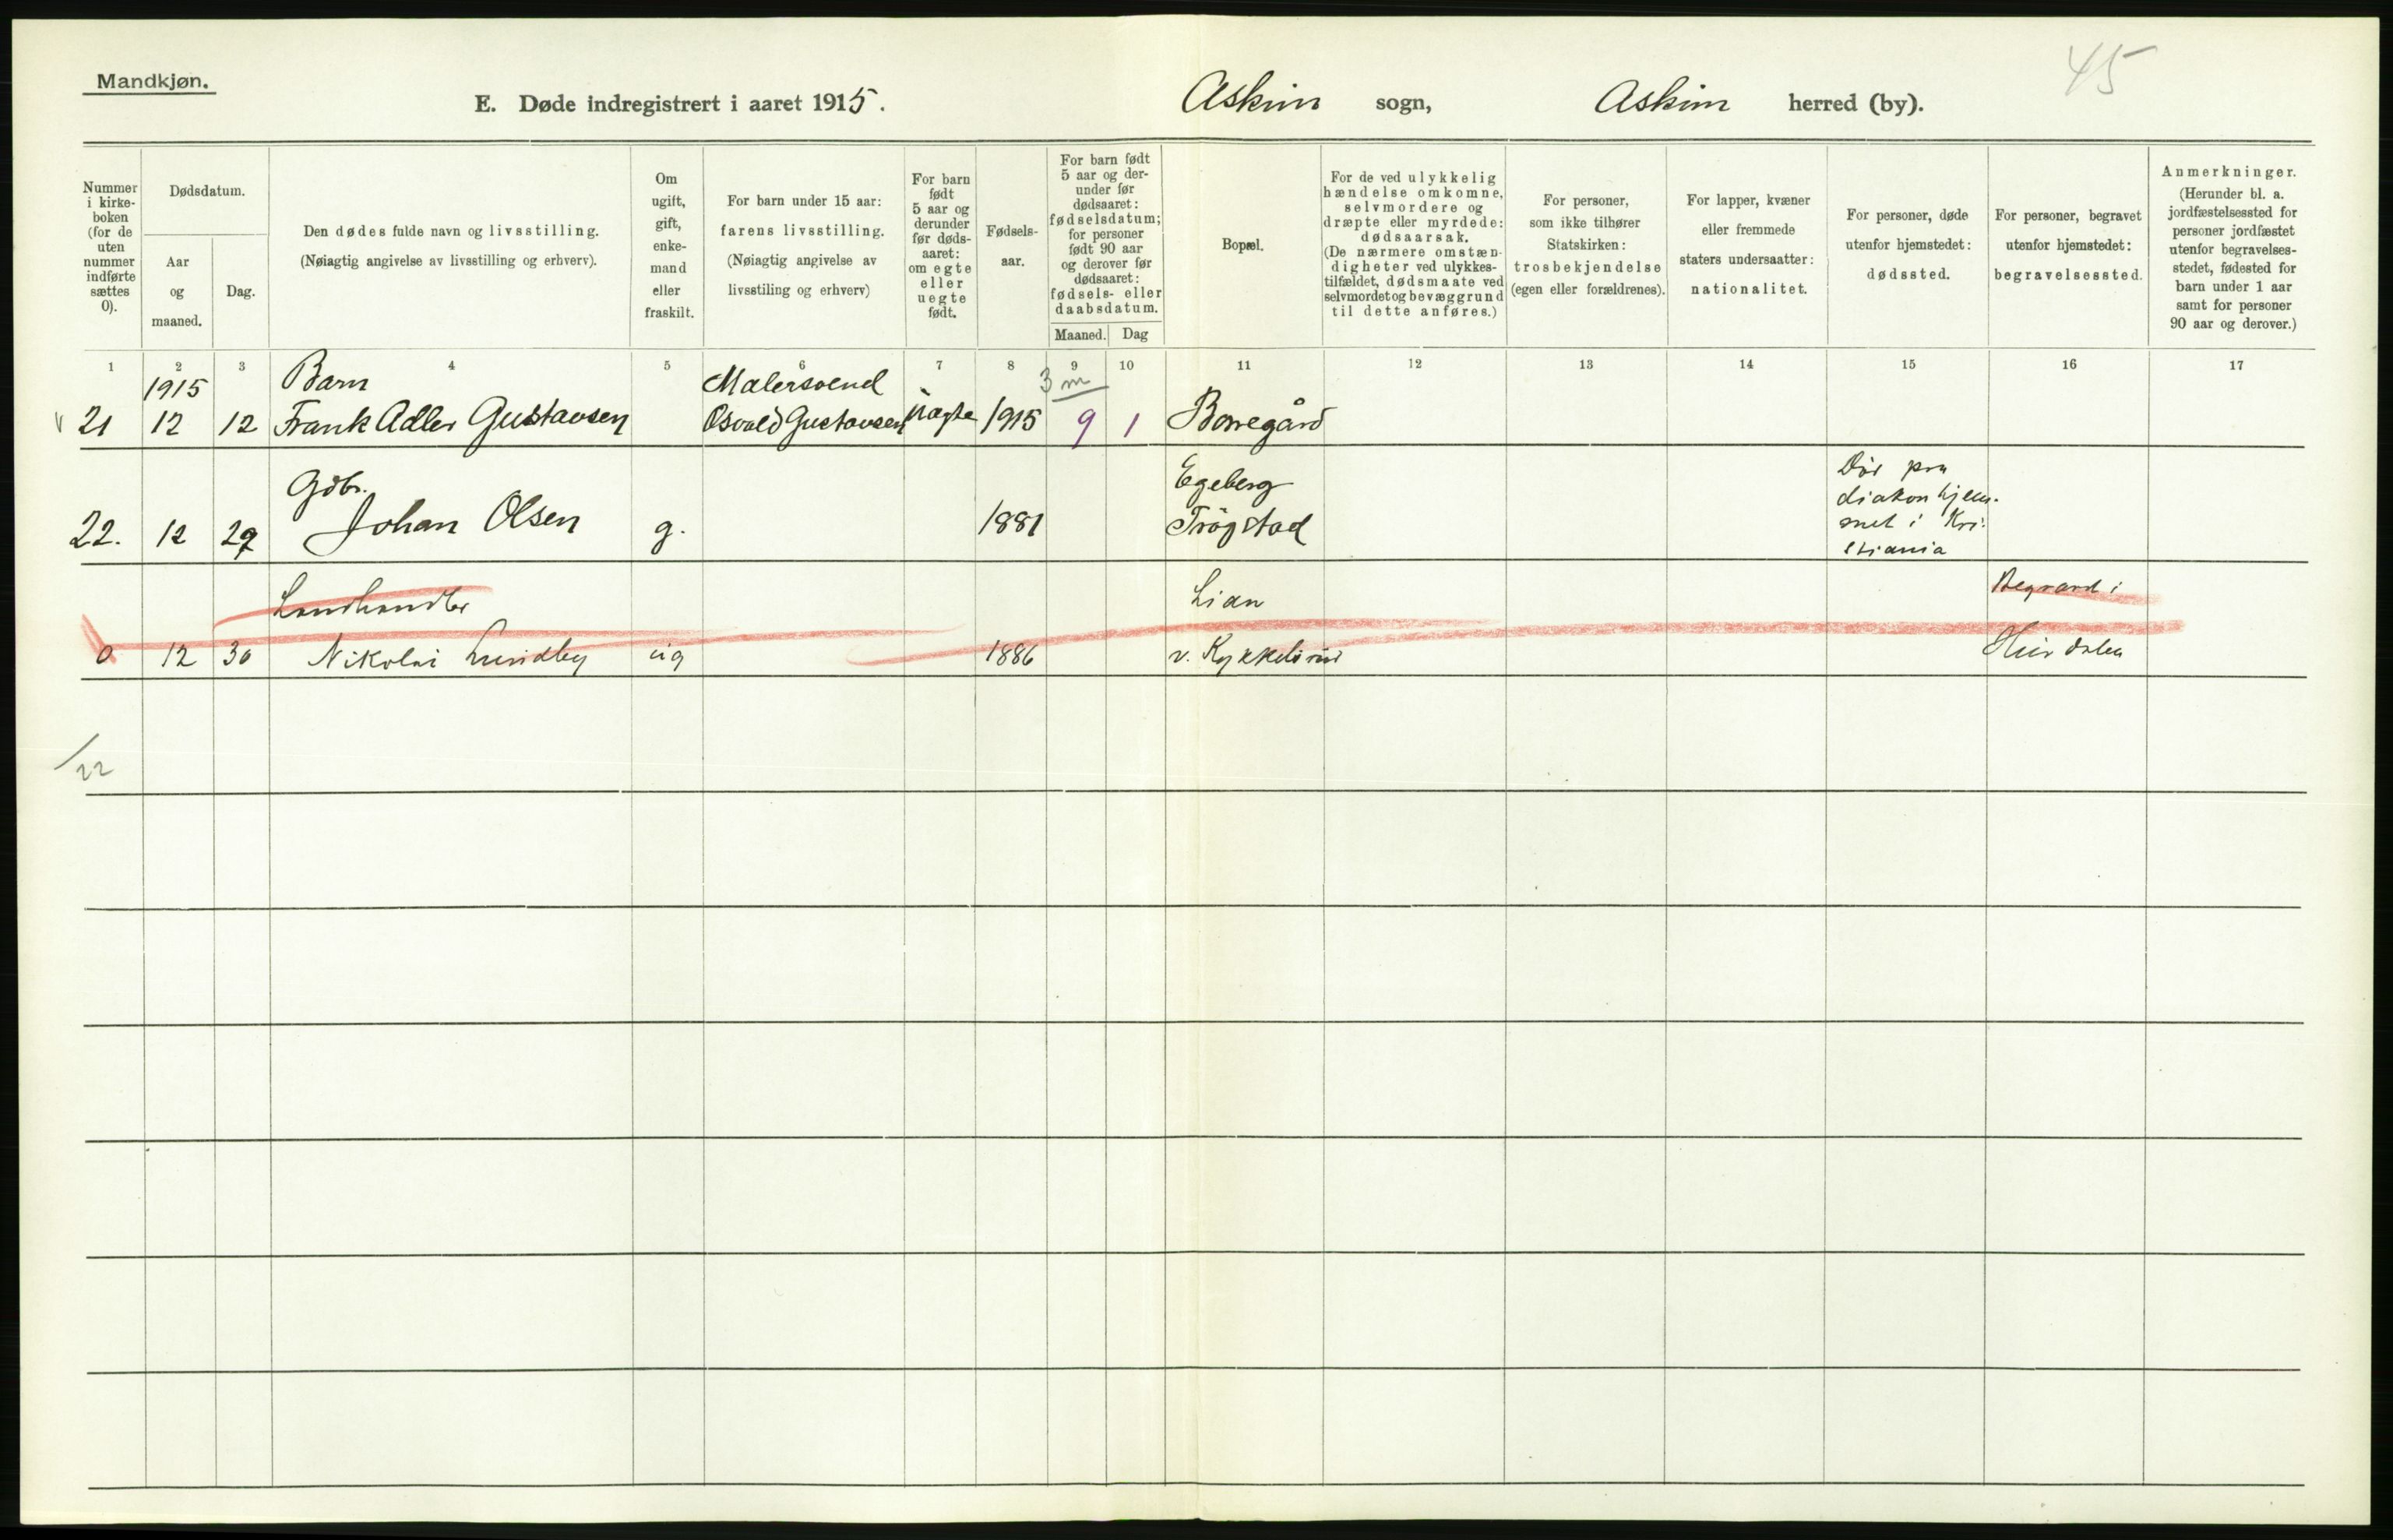 Mandkjøn.
45
E. Døde indregistrert i aaret 1915.
Askim sogn, Askim herred (by).
Nummer i kirke-boken (for de uten nummer indførte sættes 0).
Dødsdatum.
Aar og maaned.
Dag.
Den dødes fulde navn og livsstilling.
(Nøiagtig angivelse av livsstilling og erhverv).
Om ugift, gift, enke-mand eller fraskilt.
For barn under 15 aar:
farens livsstilling.
(Nøiagtig angivelse av
livsstiling og erhverv)
For barn født 5 aar og derunder før døds-aaret: om egte eller uegte født.
Fødsels-aar.
For barn født 5 aar og der-under før dødsaaret: fødselsdatum; for personer født 90 aar og derover før dødsaaret: fødsels- eller daabsdatum.
Maaned. Dag
Bopæl.
For de ved ulykkelig hændelse omkomne, selvmordere og dræpte eller myrdede: dødsaarsak.
(De nærmere omstæn-digheter ved ulykkes-tilfældet, dødsmaate ved selvmordet og bevæggrund til dette anføres.)
For personer, som ikke tilhører Statskirken: trosbekjendelse (egen eller forældrenes).
For lapper, kvæner eller fremmede staters undersaatter: nationalitet.
For personer, døde utenfor hjemstedet: dødssted.
For personer, begravet utenfor hjemstedet: begravelsessted.
Anmerkninger.
(Herunder bl. a. jordfæstelsessted for personer jordfæstet utenfor begravelses-stedet, fødested for barn under 1 aar samt for personer 90 aar og derover.)
1 2 3 4 5 6 7 8 9 10 11 12 13 14 15 16 17
1915 Barn Malersvend 3 m
21 12 12 Frank Adler Gustavsen Osvald Gustavsen uægte 1915 9 1 Borregård
Gdbr. Egeberg Død paa
diakonhjem-
22. 12 29 Johan Olsen g. 1881 Trøgstad met i Kri-
stiania
Landhandler Lian Begravd i
0 12 30 Nikolai Lundby ug 1886 v. Kykkelsrud
/22